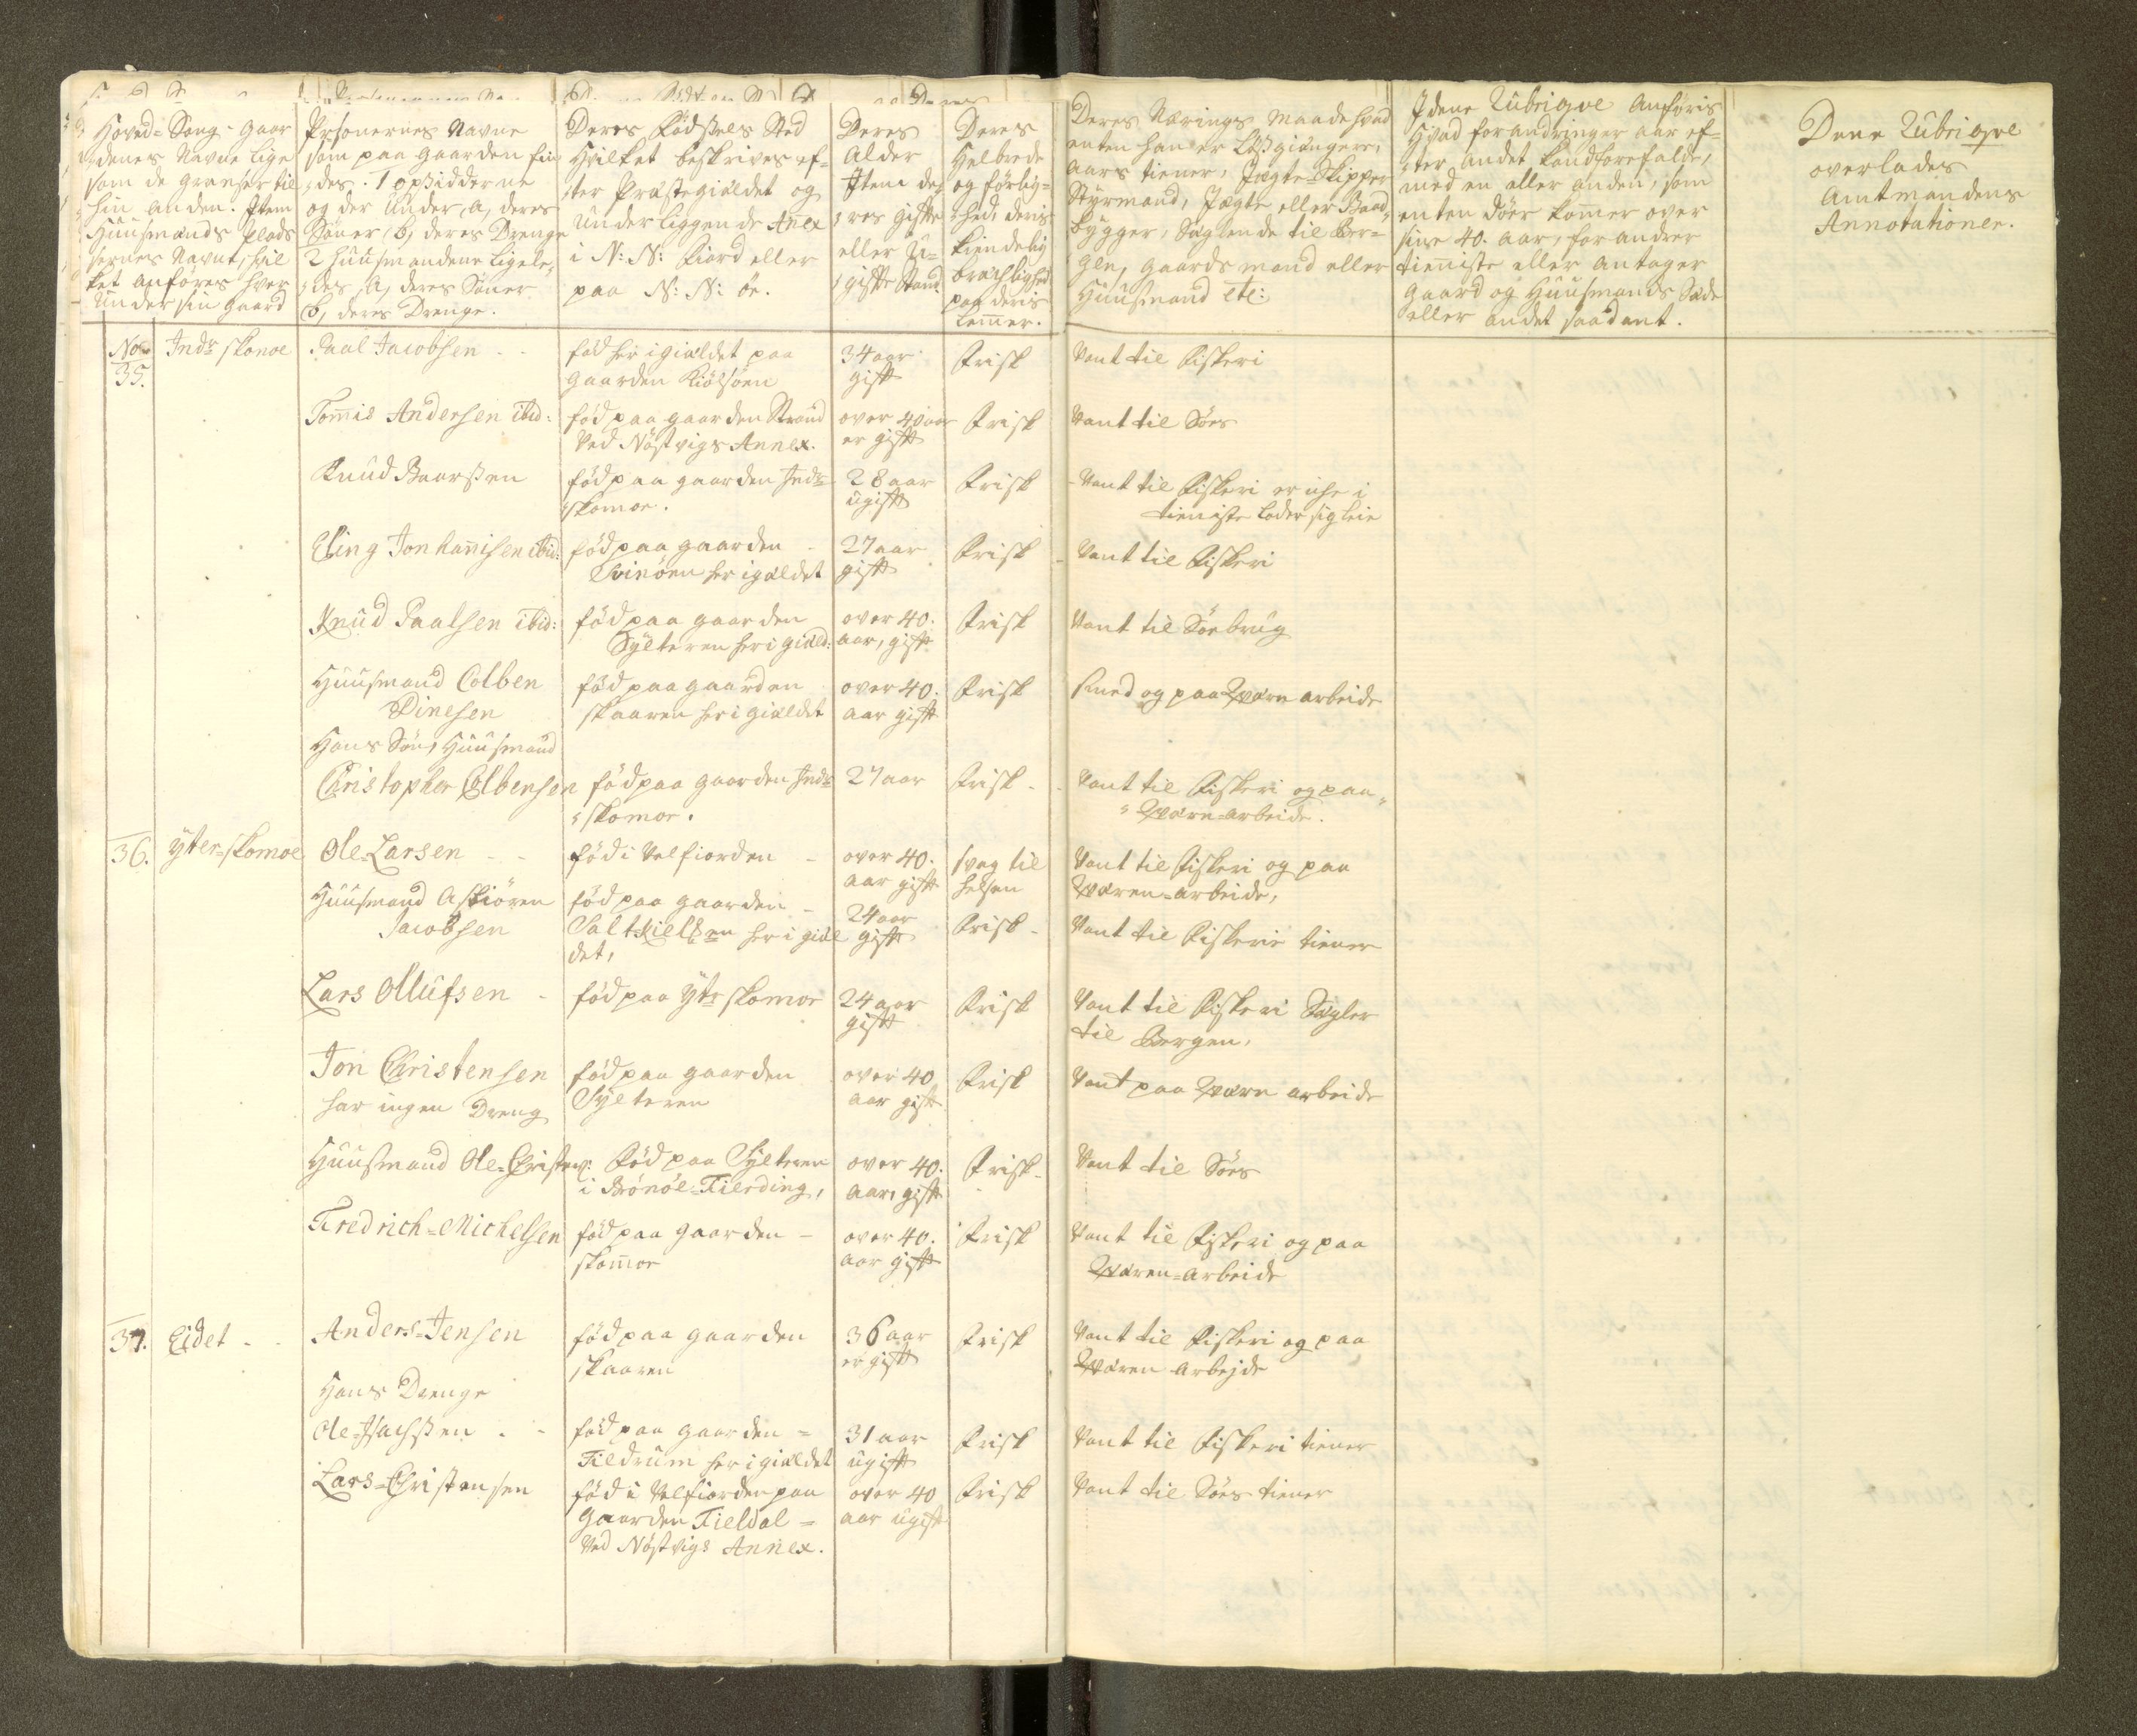 Hoved-Sang-Gaar
denes Navne lige
som de grænser til
hin anden. Item
Huusmands Plads
sernes Navne, hvil
ket anføres hver
under sin gaard
Personernes Navne
som paa gaarden fin
des. 1 opsidderne
og der under, a, deres
Sønner b, deres Drenge
2 huusmændene ligele
des, a, deres Sønner
b, deres Drenge.
Deres Fødsels Sted
Hvilket beskrives ef-
ter Præstegieldet og
underliggende Anex
i N: N: Fiord eller
paa N: N: öe.
Deres
Alder
Item de
res gifte
eller U-
gifte Stand
Deres
Helbrede
og førlig-
hed, deris
kiendelig
bræchlighed
paa deris
Lemmer.
Deres Nærings Maade hvad
enten han er Løsgiængere,
aars tiener, Jægte-Skipper
Styrmand, Jægte eller Baad
bygger, Seglende til Ber-
gen, Gaardsmand eller
Huusmand etc:
I dene Rubrigve Anføris
Hvad forandringer aar ef-
ter andet kand forefalde,
med en eller anden, som
enten döer kommer over
sine 40. aar, forandrer
tienniste eller antager
Gaard og Huusmands Sæde
eller andet saadant.
Dene Rubrigve
overlades
Amtmandens
Annotationer.
No
35.
Indr skomoe
Paal Jacobsen
fød her i gieldet paa
gaarden Kiölsöen
34 aar
gift
Frisk
Vant til Fiskeri
Tommis Andersen ibid:
fød paa gaarden Strand
Ved Nöstvigs Annex.
over 40 aar
er gift
Frisk
Vant til Söes
Knud Baarsen
fød paa gaarden Indr
skomoe.
28 aar
ugift
Frisk
Vant til Fiskeri er iche i
tieniste lader sig leie
Eling Jonhannisen ibid:
fød paa gaarden
Svinöen her i gieldet
27 aar
gift
Frisk
Vant til Fiskeri
Knud Paalsen ibid:
fød paa gaarden
Sylteren her i gield:
over 40.
aar, gift
Frisk
Vant til Söebrug
Huusmand Colben
Dinesen
fød paa gaarden
skaaren her i gieldet
over 40.
aar gift
Frisk
Smed og paa Træe arbeide
Hans Sön, Huusmand
Christopher Colbensen
fød paa gaarden Indr
skomoe.
27 aar
Frisk
Vant til Fiskeri og paa
Træe-arbeide.
36.
Yter-skomoe
Ole-Larsen
fød i Velfiorden
over 40.
aar gift
svag til
helsen
Vant til Fiskeri og paa
Træen-arbeide,
Huusmand Asbiören
Jacobsen
fød paa gaarden
Saltkielen her i giæl
det,
24 aar
gift
Frisk
Vant til Fiskerie tiener
Lars Ollufsen
fød paa Ytr skomoe
24 aar
gift
Frisk
Vant til Fiskeri Segler
til Bergen,
Jon Christensen
har ingen Dreng
fød paa gaarden
Sylteren
over 40
aar gift
Frisk
Vant paa Træe arbeide
Huusmand Ole-Christens:
Fød paa Sylteren
i Brönöe-Fierding,
over 40.
aar, gift
Frisk
Vant til Söes
Fredrich-Michelsen
fød paa gaarden
skommoe
over 40.
aar gift
Frisk
Vant til Fiskeri og paa
Træen-arbeide
37.
Eidet
Anders-Jensen
fød paa gaarden
skaaren
36 aar
er gift
Frisk
Vant til Fiskeri og paa
Træen Arbejde
Hans Drenge
Ole-Isachsen
fød paa gaarden
Tildrum her i gieldet
31 aar
ugift
Frisk
Vant til Fiskeri tiener
Lars-Christensen
fød i Velfiorden paa
gaarden Fieldal
Ved Nöstvigs Annex.
over 40
aar ugift
Frisk
Vant til Söes tiener